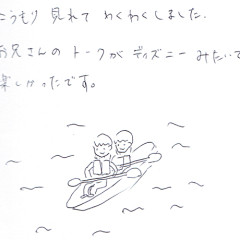 こうもり 見れて わくわくしました.
お兄さんの トークが ディズニー みたいで
楽しかったです。